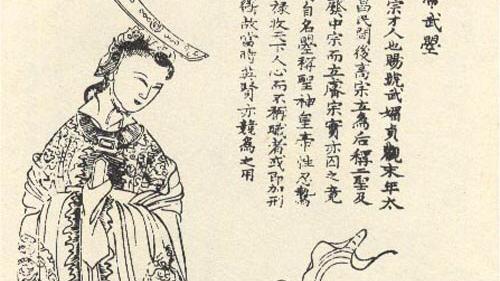 帝武曌
宗才人也賜號武媚貞觀末年太
昌民間後高宗立為后稱二聖及
廢中宗而立睿宗實亦囚之竟
自名曌稱聖神皇帝性忍鷙
祿收天下人心而不稱職者或即加刑
故當時英賢亦競為之用